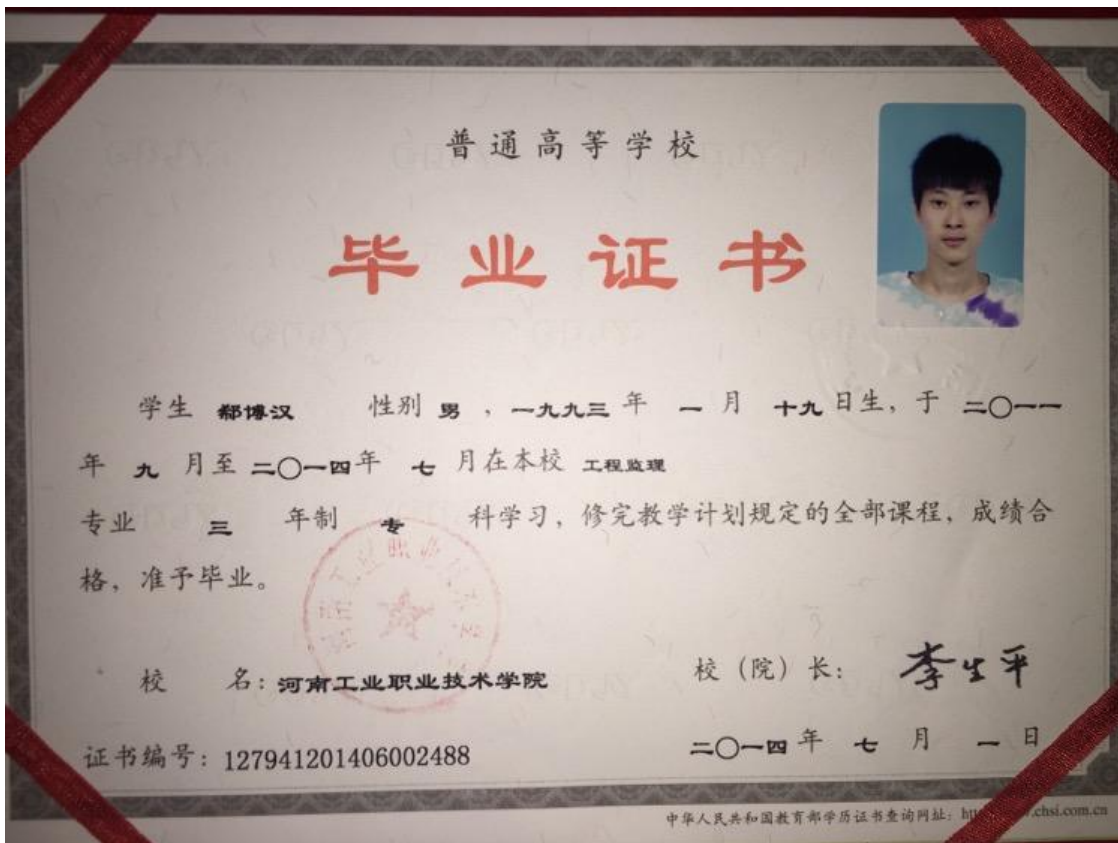 普通高等学校
毕业证书
学生 郗博汉 性别 男 ，一九九三 年 一 月 十九 日生，于 二〇一一
年 九 月至 二〇一四 年 七 月在本校 工程监理
专业 三 年制 专 科学习，修完教学计划规定的全部课程，成绩合
格，准予毕业。
河南工业职业技术学院
校 名：河南工业职业技术学院
校（院）长： 李生平
证书编号：127941201406002488
二〇一四 年 七 月 一 日
中华人民共和国教育部学历证书查询网址： .chsi.com.cn